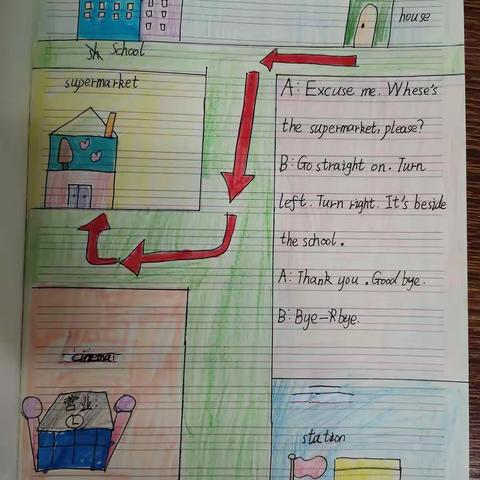 house
School
supermarket
A: Excuse me. Whese's
the supermarket, please?
B: Go straight on. Turn
left. Turn right. It's beside
the school.
A: Thank you. Good bye.
B: Bye-Rbye.
cinemai
营业
station